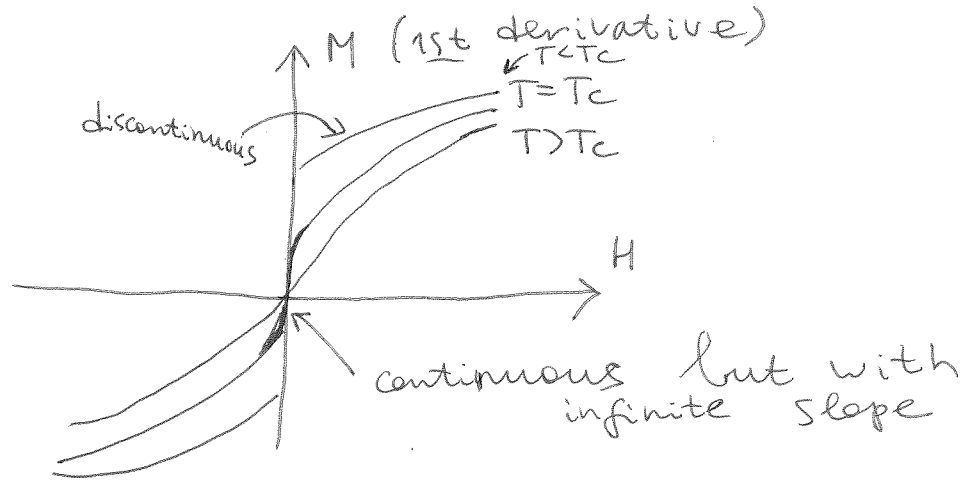 M (1st derivative)
T<Tc
T=Tc
discontinuous
T>Tc
H
continuous but with
infinite slope